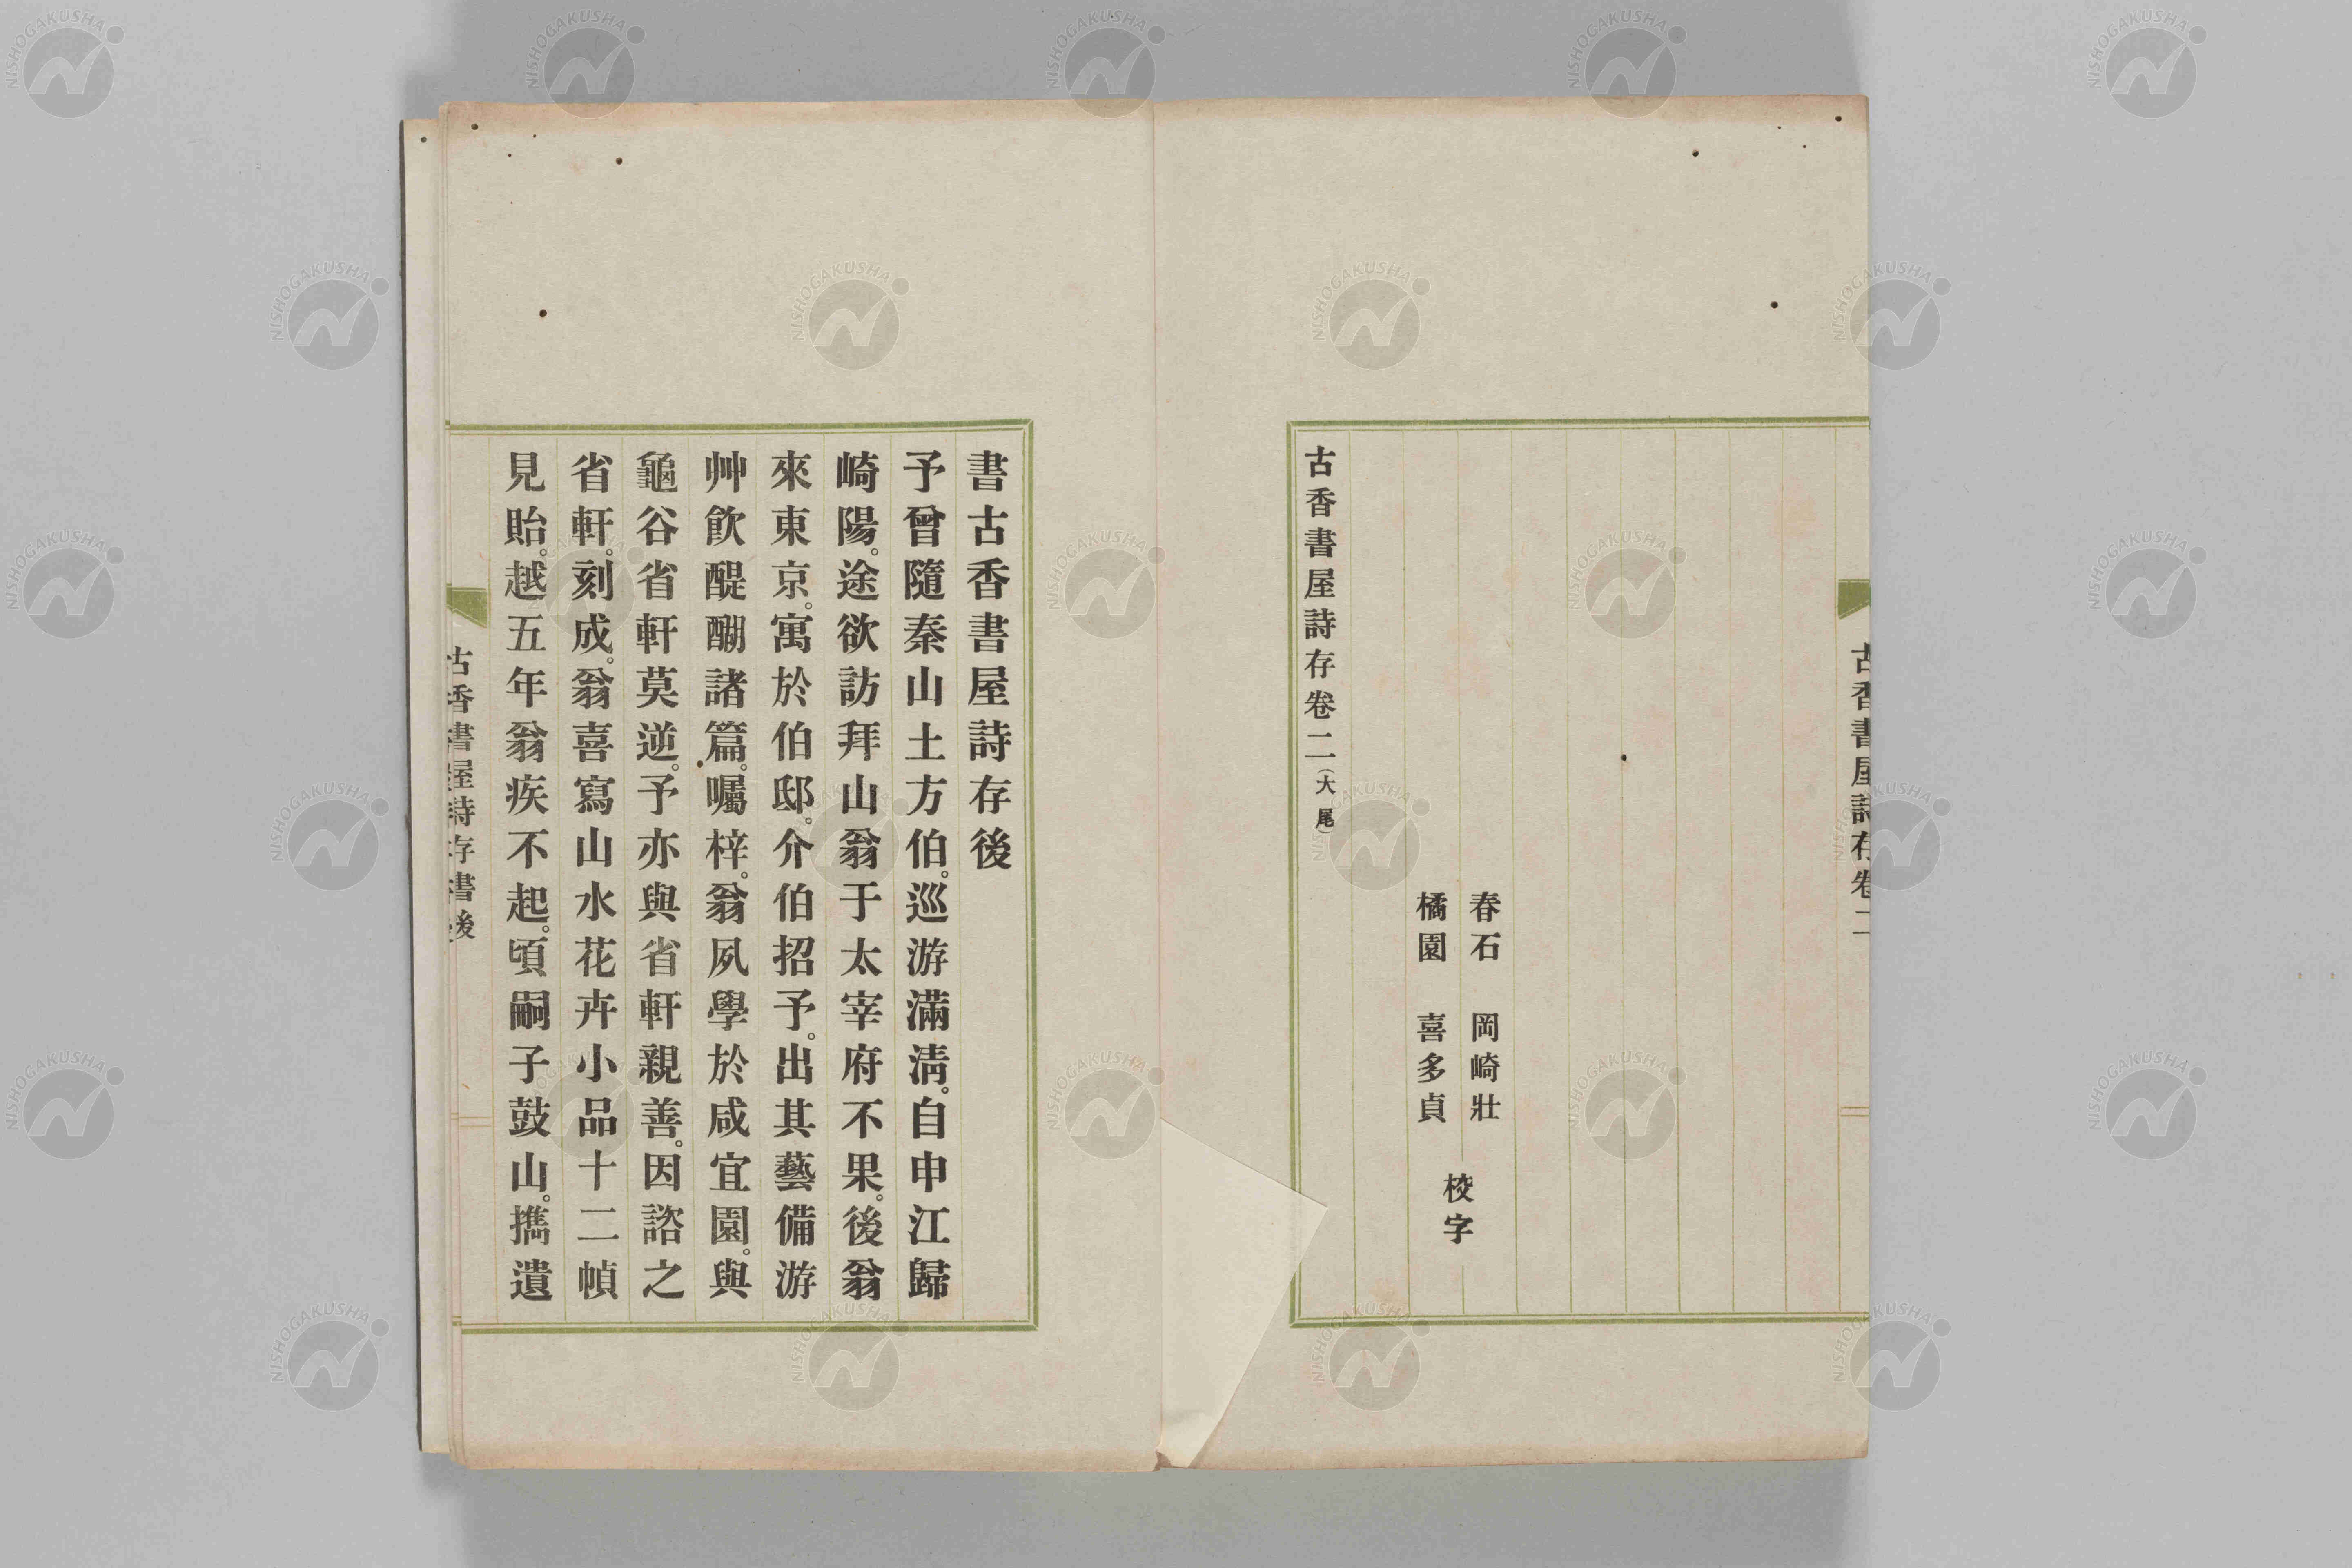 古香書屋詩存卷二
春石　岡崎壯
橘園　喜多貞
校字
古香書屋詩存卷二（大尾）
書古香書屋詩存後
予曾隨秦山土方伯。巡游滿淸。自申江歸
崎陽。途欲訪拜山翁于太宰府不果。後翁
來東京。寓於伯邸。介伯招予。出其藝備游
艸飮醍醐諸篇。囑梓。翁夙學於咸宜園。與
龜谷省軒莫逆。予亦與省軒親善。因諮之
省軒。刻成。翁喜寫山水花卉小品十二幀
見貽。越五年翁疾不起。頃嗣子鼓山。攜遺
古香書屋詩存書後
NISHOGAKUSHA